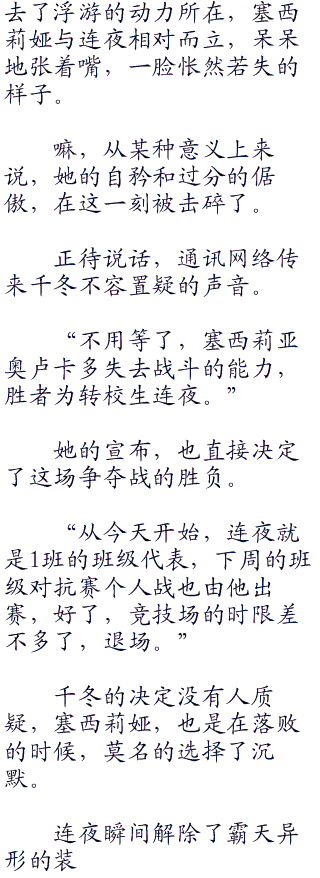 去了浮游的动力所在，塞西
莉娅与连夜相对而立，呆呆
地张着嘴，一脸怅然若失的
样子。
嘛，从某种意义上来
说，她的自矜和过分的倨
傲，在这一刻被击碎了。
正待说话，通讯网络传
来千冬不容置疑的声音。
“不用等了，塞西莉亚
奥卢卡多失去战斗的能力，
胜者为转校生连夜。”
她的宣布，也直接决定
了这场争夺战的胜负。
“从今天开始，连夜就
是1班的班级代表，下周的班
级对抗赛个人战也由他出
赛，好了，竞技场的时限差
不多了，退场。”
千冬的决定没有人质
疑，塞西莉娅，也是在落败
的时候，莫名的选择了沉
默。
连夜瞬间解除了霸天异
形的装